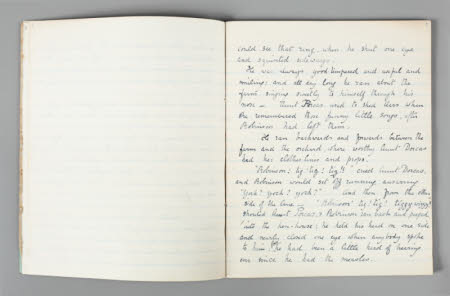 could see that ring, when he shut one eye
and squinted sideways.
He was always good tempered and useful and
smiling; and all day long he ran about the
farm singing small to himself through his
nose — Aunt Porcas used to shed tears when
she remembered those funny little songs, after
Robinson had left them.
He ran backwards and forwards between the
farm and the orchard, where worthy Aunt Dorcas
had her clothes lines and props.
"Robinson! tig! tig! tig!" cried Aunt Dorcas,
and Robinson would set off running answering
"Yock? yock? yock?" And then from the other
side of the lane — "Robinson! tig! tig!
shouted Aunt Porcas, & Robinson ran back and peeped
into the hen-house; he held his head on one side
and nearly closed one eye when anybody spoke
to him; he had been a little hard of hearing
ever since he had the measles.